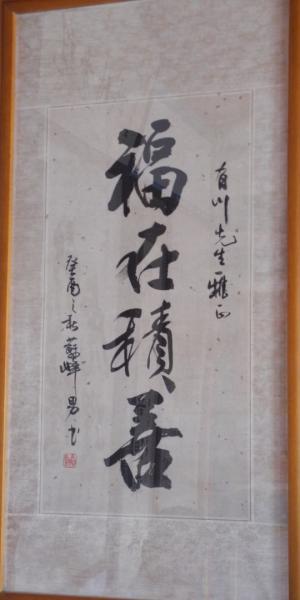 有川先生雅正
福在積善
癸酉之秋蘇峰男书